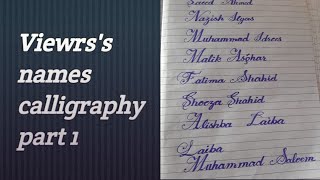 Viewrs's
names
calligraphy
part 1
Saeed Ahmed
Nazish Ilyas
Muhammad Idrees
Malik Asghar
Fatima Shahid
Shooza Shahid
Alishba Laiba
Laiba
Muhammad Saleem